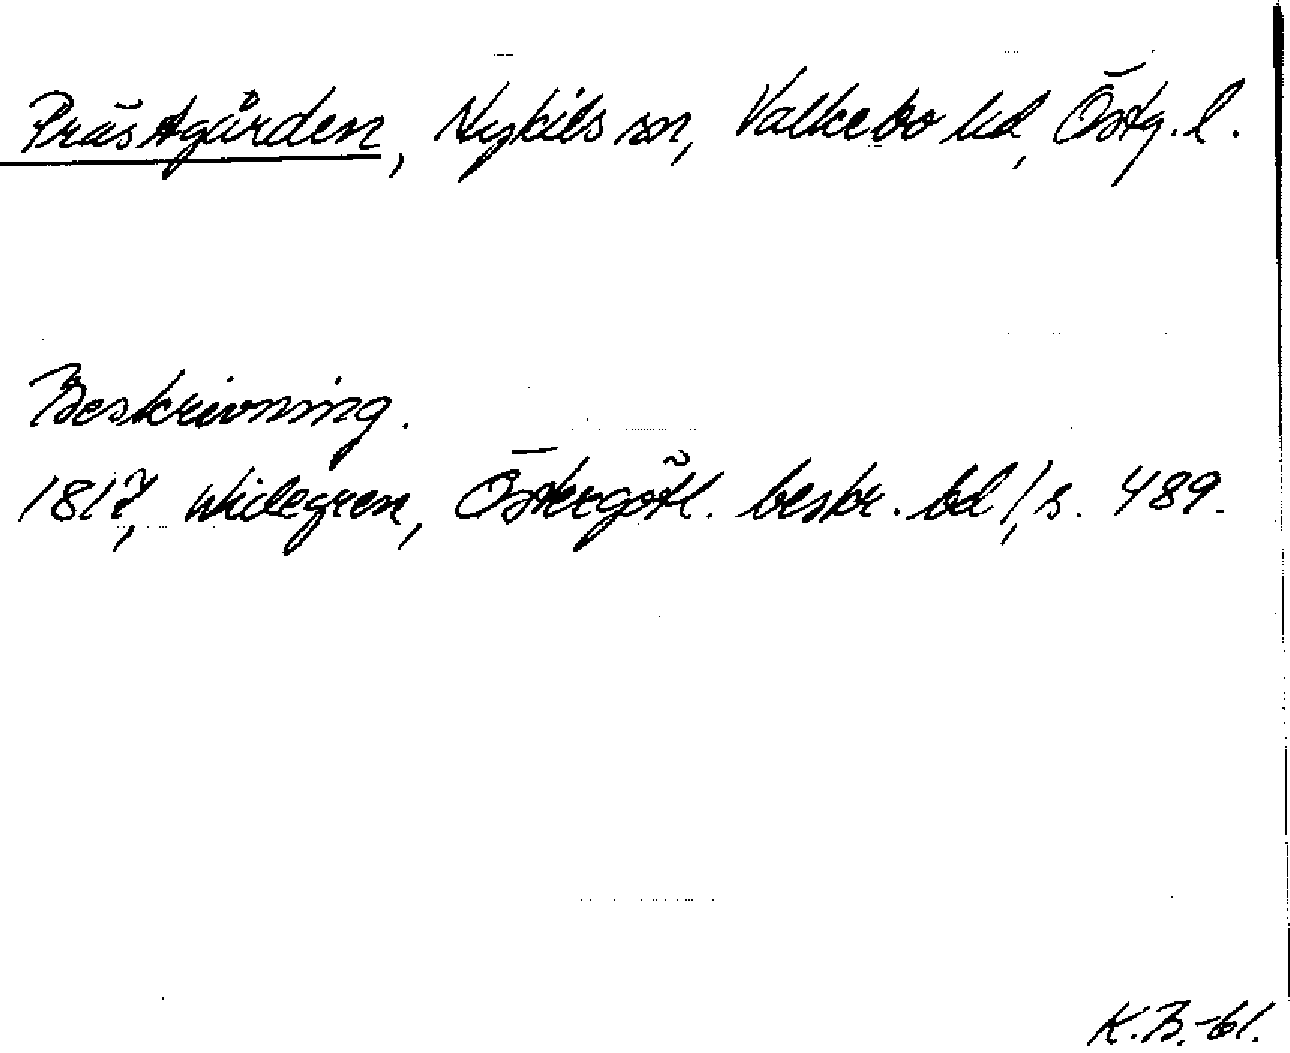 Prästgården, Nykils sn, Valkebo hd, Östg. l.
Beskrivning.
1817, Widegren, Östergötl. beskr. bd 1, s. 489.
K.B.-61.